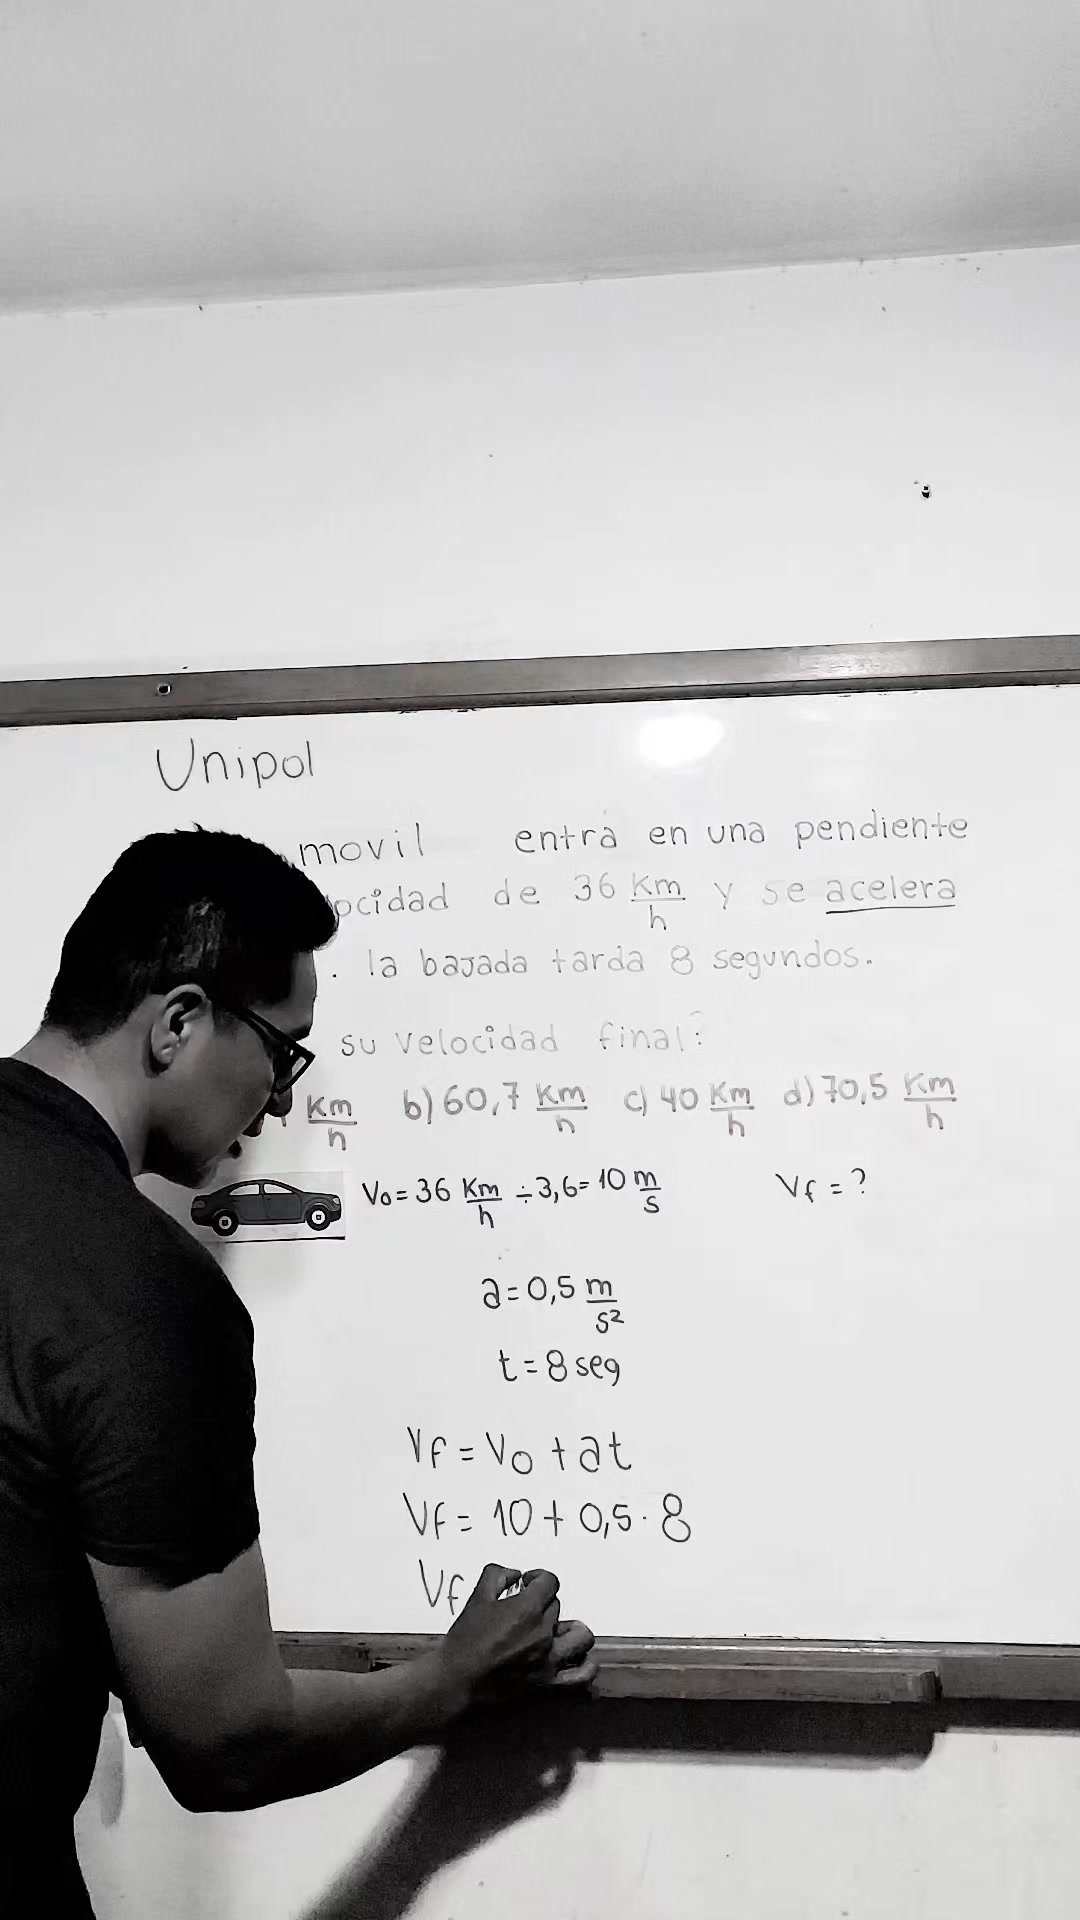 Unipol
movil entra en una pendiente
ocidad de 36 Km/h y se acelera
. la bajada tarda 8 segundos.
su velocidad final?
Km/h b) 60,7 Km/h c) 40 Km/h d) 70,5 Km/h
Vo = 36 Km/h ÷ 3,6 = 10 m/s Vf = ?
a = 0,5 m/s²
t = 8 seg
Vf = Vo + at
Vf = 10 + 0,5 · 8
Vf